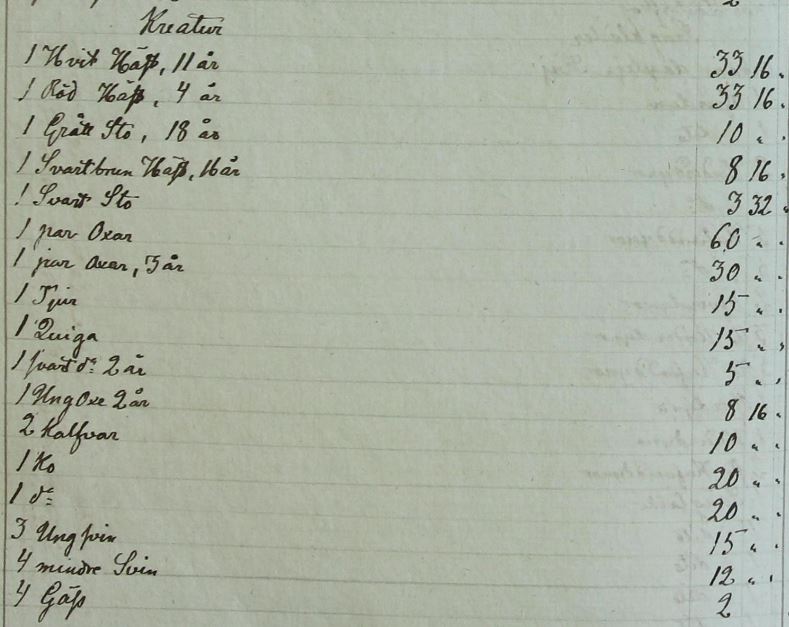 Kreatur
1 Hvit Häst, 11 år 33 16 .
1 Röd Häst, 4 år 33 16 .
1 Grått Sto, 18 år 10 " .
1 Svartbrun Häst, 16 år 8 16 .
1 Svart Sto 3 32 .
1 par Oxar 60 " .
1 par Oxar, 3 år 30 " .
1 Tjur 15 " .
1 Quiga 15 " .
1 svart do 2 år 5 " .
1 Ung Oxe 2 år 8 16 .
2 Kalfvar 10 " .
1 Ko 20 " .
1 do 20 " .
3 Ungsvin 15 " .
4 mindre Svin 12 " .
4 Gäss 2